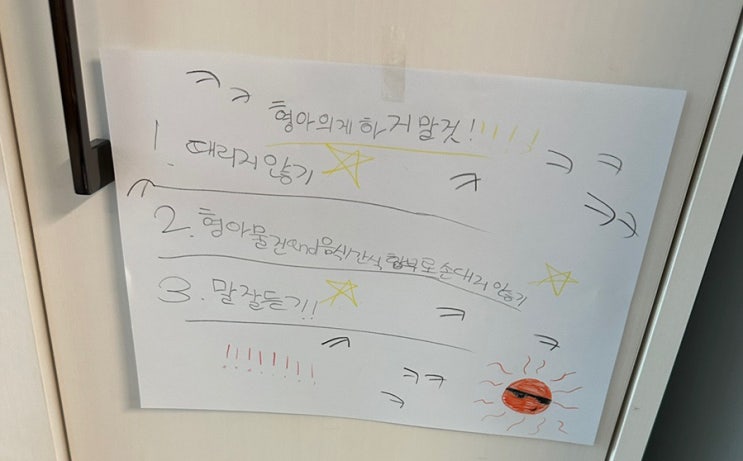 ㅋㅋ
형아의게 하거 말것!!!!!
1. 때리지 않기
ㅋㅋ
ㅋ
ㅋㅋ
ㅋ
2. 형아물건and음식/간식 함부로 손대지 않기
3. 말잘듣기!!
ㅋ
ㅋ
ㅋ
!!!!!!!!
ㅋㅋ
ㅋ